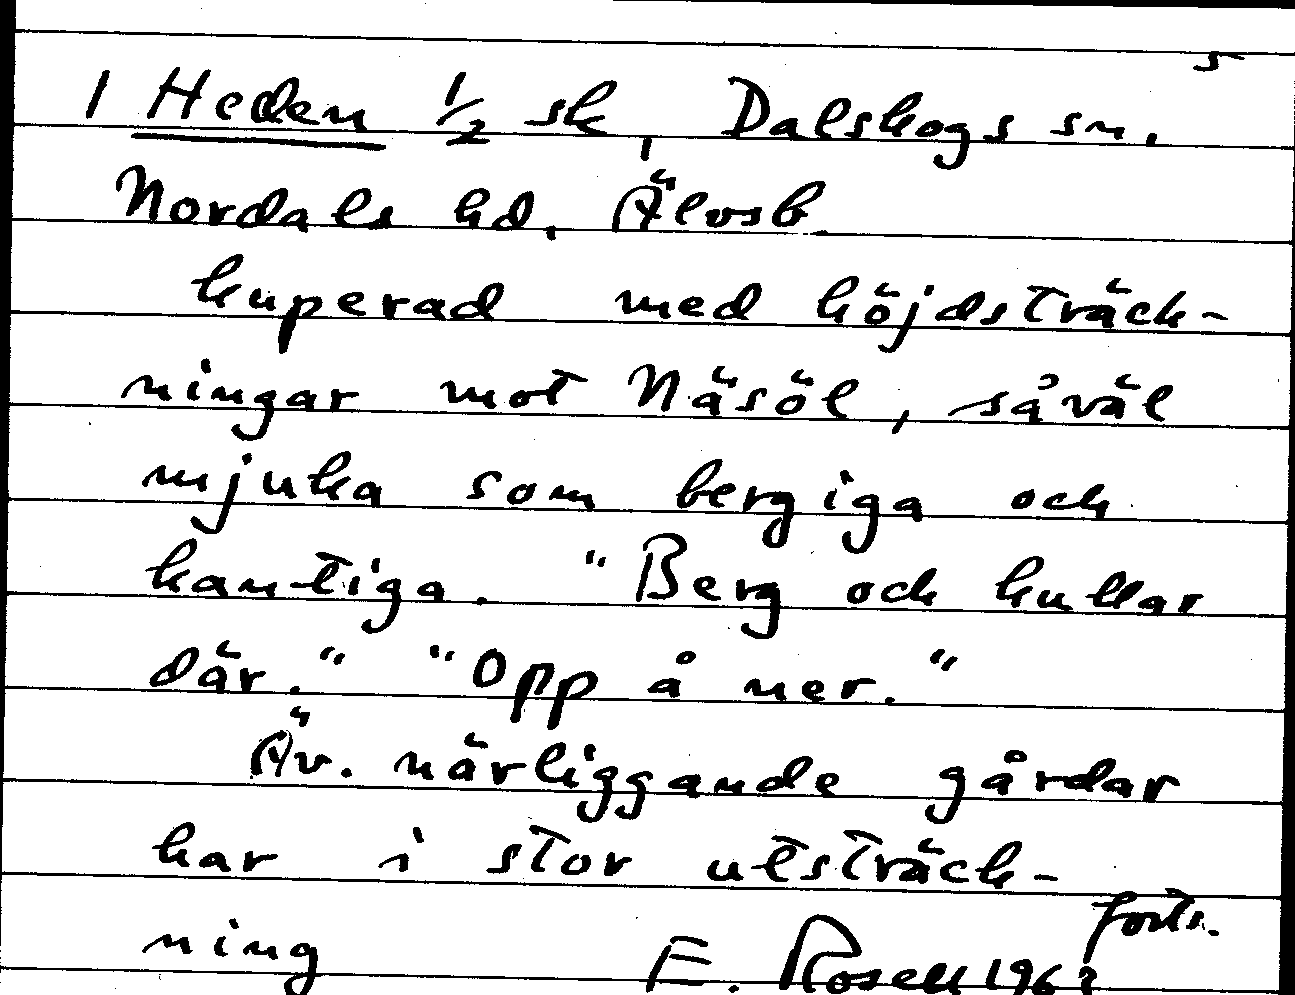 5
1 Heden 1/2 sk, Dalskogs sn.
Nordals hd, Älvsb.
kuperad med höjdsträck-
ningar mot Näsöl, såväl
mjuka som bergiga och
kantiga. "Berg och kullar
där." "Opp å ner."
Äv. närliggande gårdar
har i stor utsträck-
ning forts.
E. Rosell